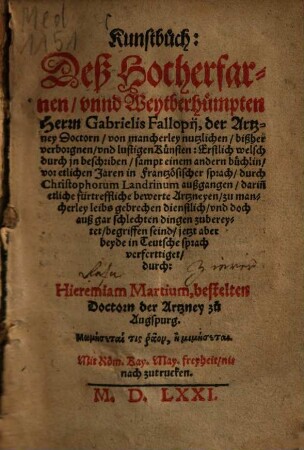 Med
1151
Kunstbůch:
Deß Hocherfar-
nen/ vnnd Weytberhümpten
Herrn Gabrielis Fallopij, der Artz-
ney Doctorn/ von mancherley nutzlichen/ bißher
verborgnen/ vnd lustigen Künsten: Erstlich welsch
durch jn beschriben/ sampt einem andern büchlin/
vor etlichen Jaren in Frantzösischer sprach/ durch
Christophorum Landrinum außgangen/ dariñ
etliche fürtreffliche bewerte Artzneyen/ zu man-
cherley leibs gebrechen dienstlich/ vnd doch
auß gar schlechten dingen zuberey-
tet/ begriffen seind/ jetzt aber
beyde in Teutsche sprach
verferttiget/
durch:
Hieremiam Martium, bestelten
Doctorn der Artzney zů
Augspurg.
Μωμήσεταί τις ῥᾷον, ἢ μιμήσεται.
Mit Röm. Kay. May. freyheit/ nit
nach zutrucken.
M. D. LXXI.